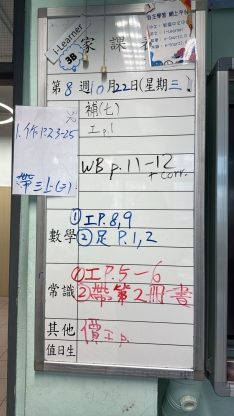 i-Learner
3B
家課
自主學習 網上平台
第8週10月22日(星期三)
補(七)
工p.1
1. 作 P.23-25
帶三上(二)
WB p.11-12
+ corr.
數學
①工P.8,9
②足 P.1,2
常識
①工P.5-6
②帶第2冊書
其他
價工p.
值日生